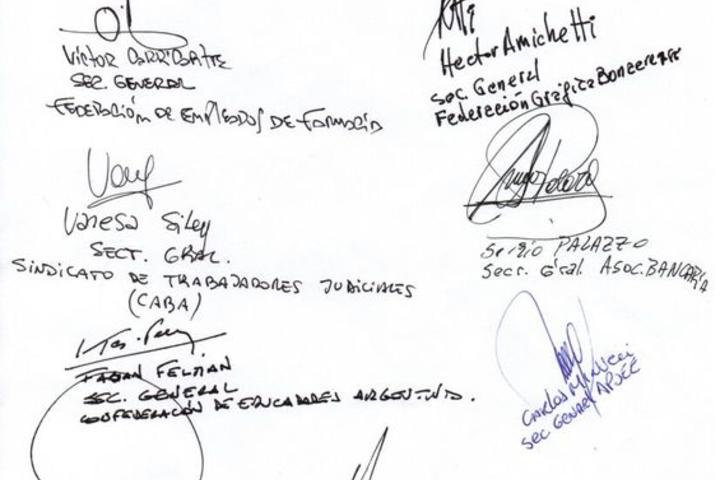 VICTOR CARRICARTE
SEC. GENERAL
FEDERACIÓN DE EMPLEADOS DE FARMACIA
Hector Amichetti
Sec. General
Federación Gráfica Bonaerense
Vanesa Siley
SECT. GRAL.
SINDICATO DE TRABAJADORES JUDICIALES
(CABA)
Sergio PALAZZO
Secr. Gral. ASOC. BANCARIA
FABIAN FELMAN
SEC. GENERAL
CONFEDERACIÓN DE EDUCADORES ARGENTINOS.
CARLOS MINUCCI
SEC GENERAL APSEE